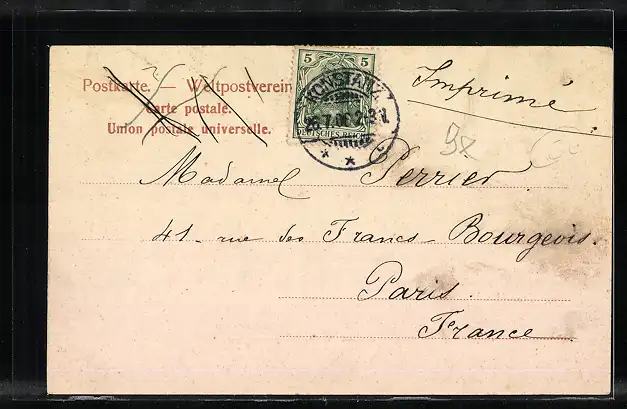 Postkarte. — Weltpostverein
Carte postale.
Union postale universelle.
5 5
DEUTSCHES REICH
KONSTANZ
Imprimé
Madame Perrier.
41 - rue des Francs-Bourgeois.
Paris.
France